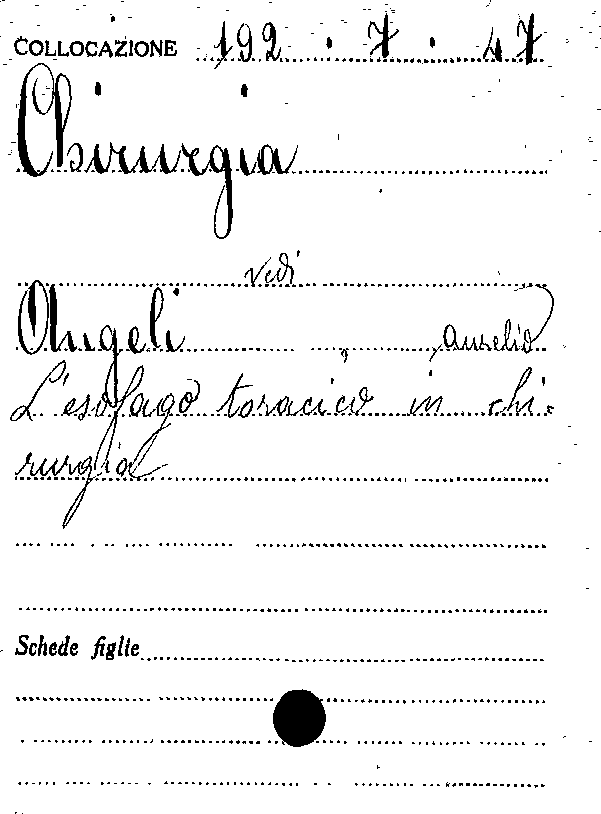 COLLOCAZIONE 192 . 7 . 47
Chirurgia
vedi
Angeli , Aurelio
L'esofago toracico in chi-
rurgia
Schede figlie